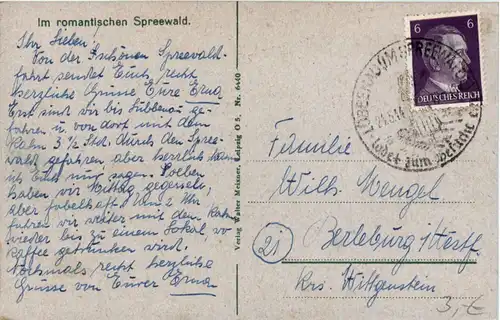 Im romantischen Spreewald.
Ihr Lieben!
Von der schönen Spreewald-
fahrt sendet Euch recht
herzliche Grüsse Eure Erna
Erst sind wir bis Lübbenau ge-
fahren u. von dort mit dem
Kahn 3 ½ Std. durch den Spree-
wald gefahren, aber herrlich kann
ich Euch nur sagen. Soeben
haben wir Mittag gegessen,
aber fabelhaft. Um 2 Uhr
fahren wir weiter mit dem Kahn
wieder bis zu einem Lokal, wo
Kaffee getrunken wird.
Nochmals recht herzliche
Grüsse von Eurer Erna
Verlag Walter Meixner, Leipzig O 5, Nr. 640
6 6
DEUTSCHES REICH
LÜBBENAU IM SPREEWALD
ladet zum Besuche
Familie
Wilh. Mengel
21
Berleburg i/Westf.
Krs. Wittgenstein
3,-€